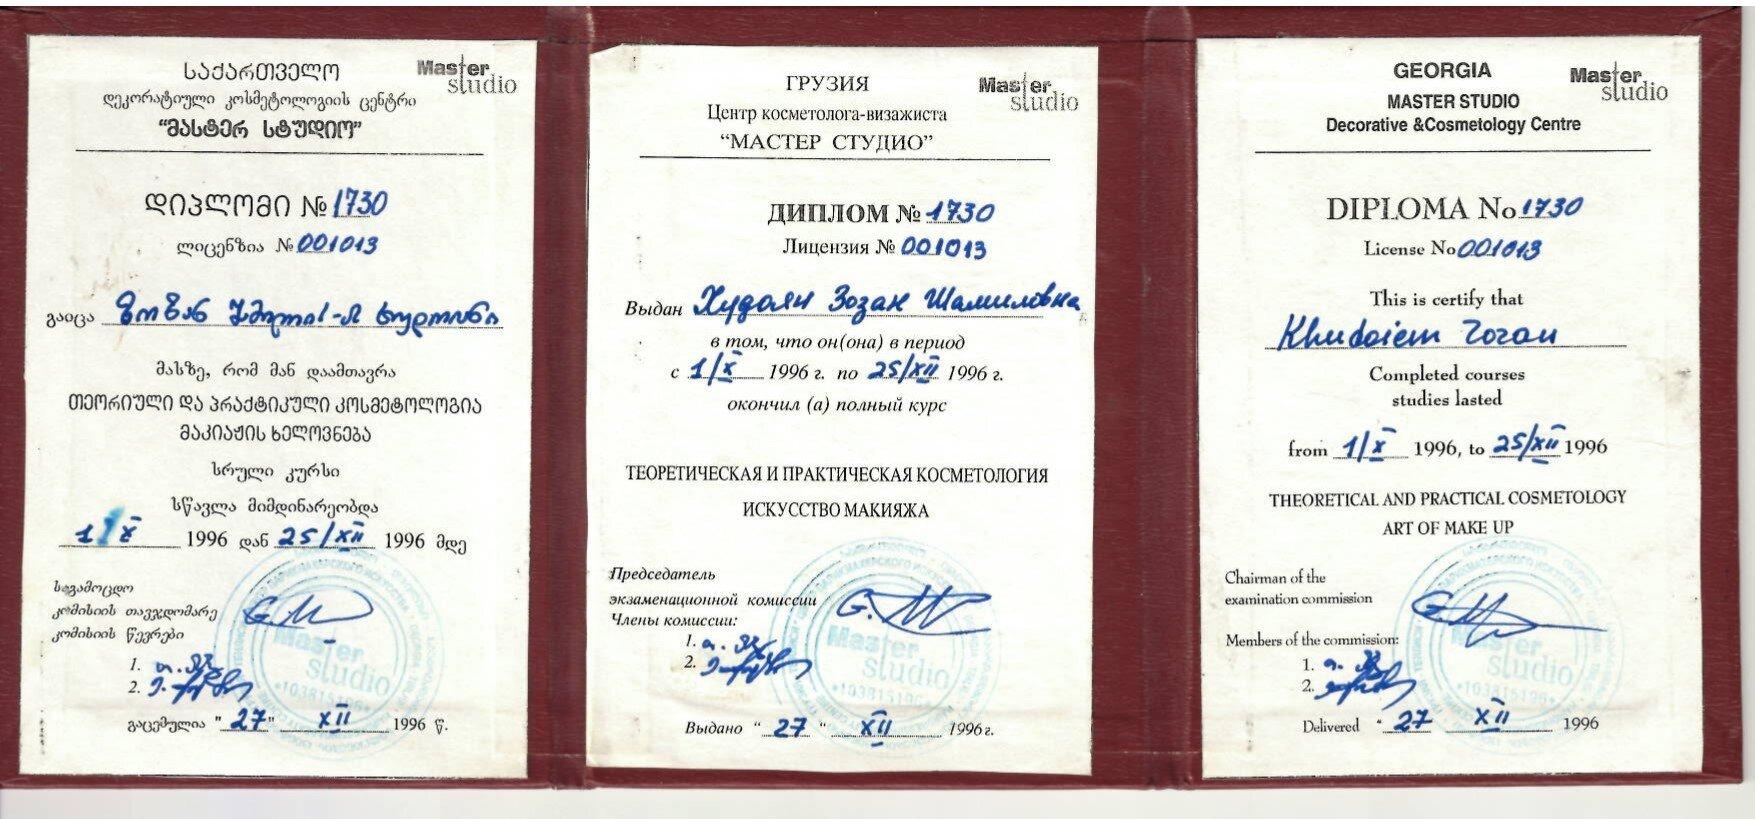 საქართველო
Master
studio
დეკორატიული კოსმეტოლოგიის ცენტრი
“მასტერ სტუდიო”
დიპლომი № 1730
ლიცენზია № 001013
გაიცა ზოზან
მასზე, რომ მან დაამთავრა
თეორიული და პრაქტიკული კოსმეტოლოგია
მაკიაჟის ხელოვნება
სრული კურსი
სწავლა მიმდინარეობდა
1/X 1996 დან 25/XII 1996 მდე
საგამოცდო
კომისიის თავჯდომარე
კომისიის წევრები
1.
2.
გაცემულია "27" XII 1996 წ.
Master
studio
*103815196*
ГРУЗИЯ
Master
studio
Центр косметолога-визажиста
“МАСТЕР СТУДИО”
ДИПЛОМ № 1730
Лицензия № 001013
Выдан Худоян Зозан Шамиловна
в том, что он(она) в период
с 1/X 1996 г. по 25/XII 1996 г.
окончил (а) полный курс
ТЕОРЕТИЧЕСКАЯ И ПРАКТИЧЕСКАЯ КОСМЕТОЛОГИЯ
ИСКУССТВО МАКИЯЖА
Председатель
экзаменационной комиссии
Члены комиссии:
1.
2.
Выдано “ 27 “ XII 1996 г.
Master
studio
*103815196*
GEORGIA
Master
studio
MASTER STUDIO
Decorative &Cosmetology Centre
DIPLOMA No 1730
License No 001013
This is certify that
Khudoien Zozan
Completed courses
studies lasted
from 1/X 1996, to 25/XII 1996
THEORETICAL AND PRACTICAL COSMETOLOGY
ART OF MAKE UP
Chairman of the
examination commission
Members of the commission:
1.
2.
Delivered “ 27 XII 1996
Master
studio
*103815196*